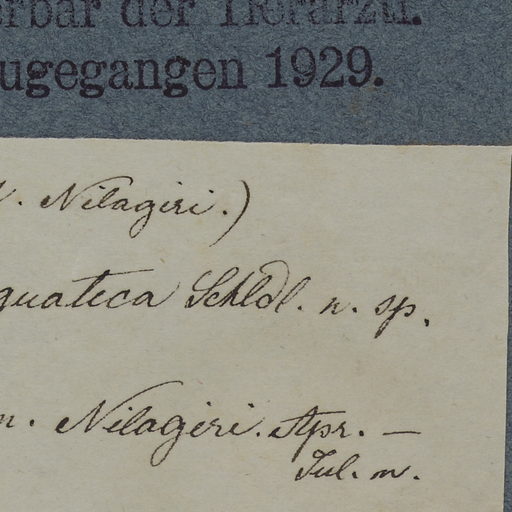 erbar der Tierärztl.
ugegangen 1929.
. Nilagiri.)
quatica Schldl. n. sp.
m. Nilagiri. Apr. —
Jul. m.